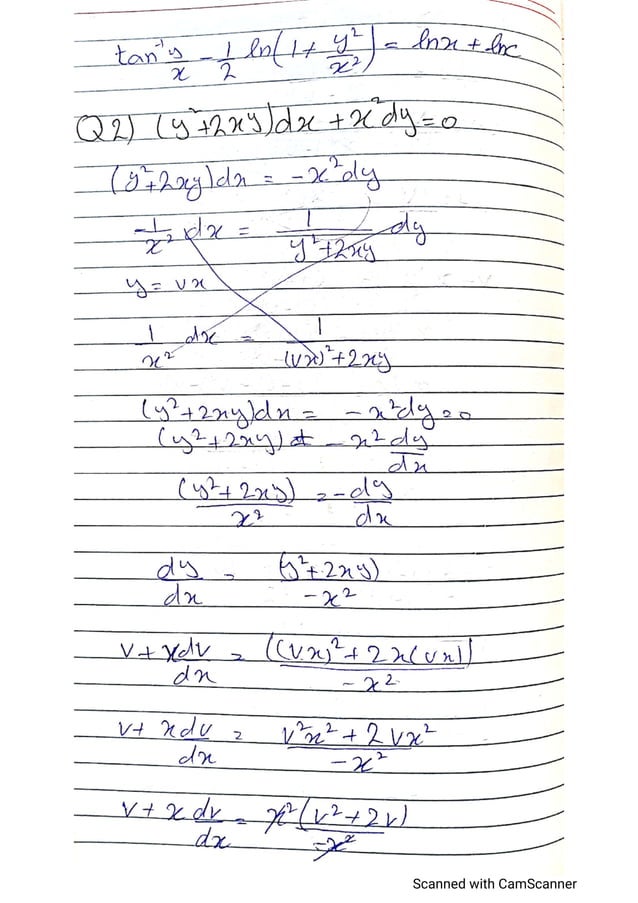 tan⁻¹ y/x - 1/2 ln(1 + y²/x²) = lnx + lnc
Q2) (y²+2xy)dx + x²dy = 0
(y²+2xy)dx = -x²dy
1/x² dx = 1/(y²+2xy) dy
y = vx
1/x² dx = 1/((vx)²+2xy)
(y²+2xy)dx = -x²dy = 0
(y²+2xy) = -x² dy/dx
(y²+2xy)/x² = -dy/dx
dy/dx = (y²+2xy)/-x²
v + xdv/dx = ((vx)²+2x(vx))/-x²
v + xdv/dx = v²x²+2vx²/-x²
v + x dv/dx = x²(v²+2v)/-x²
Scanned with CamScanner